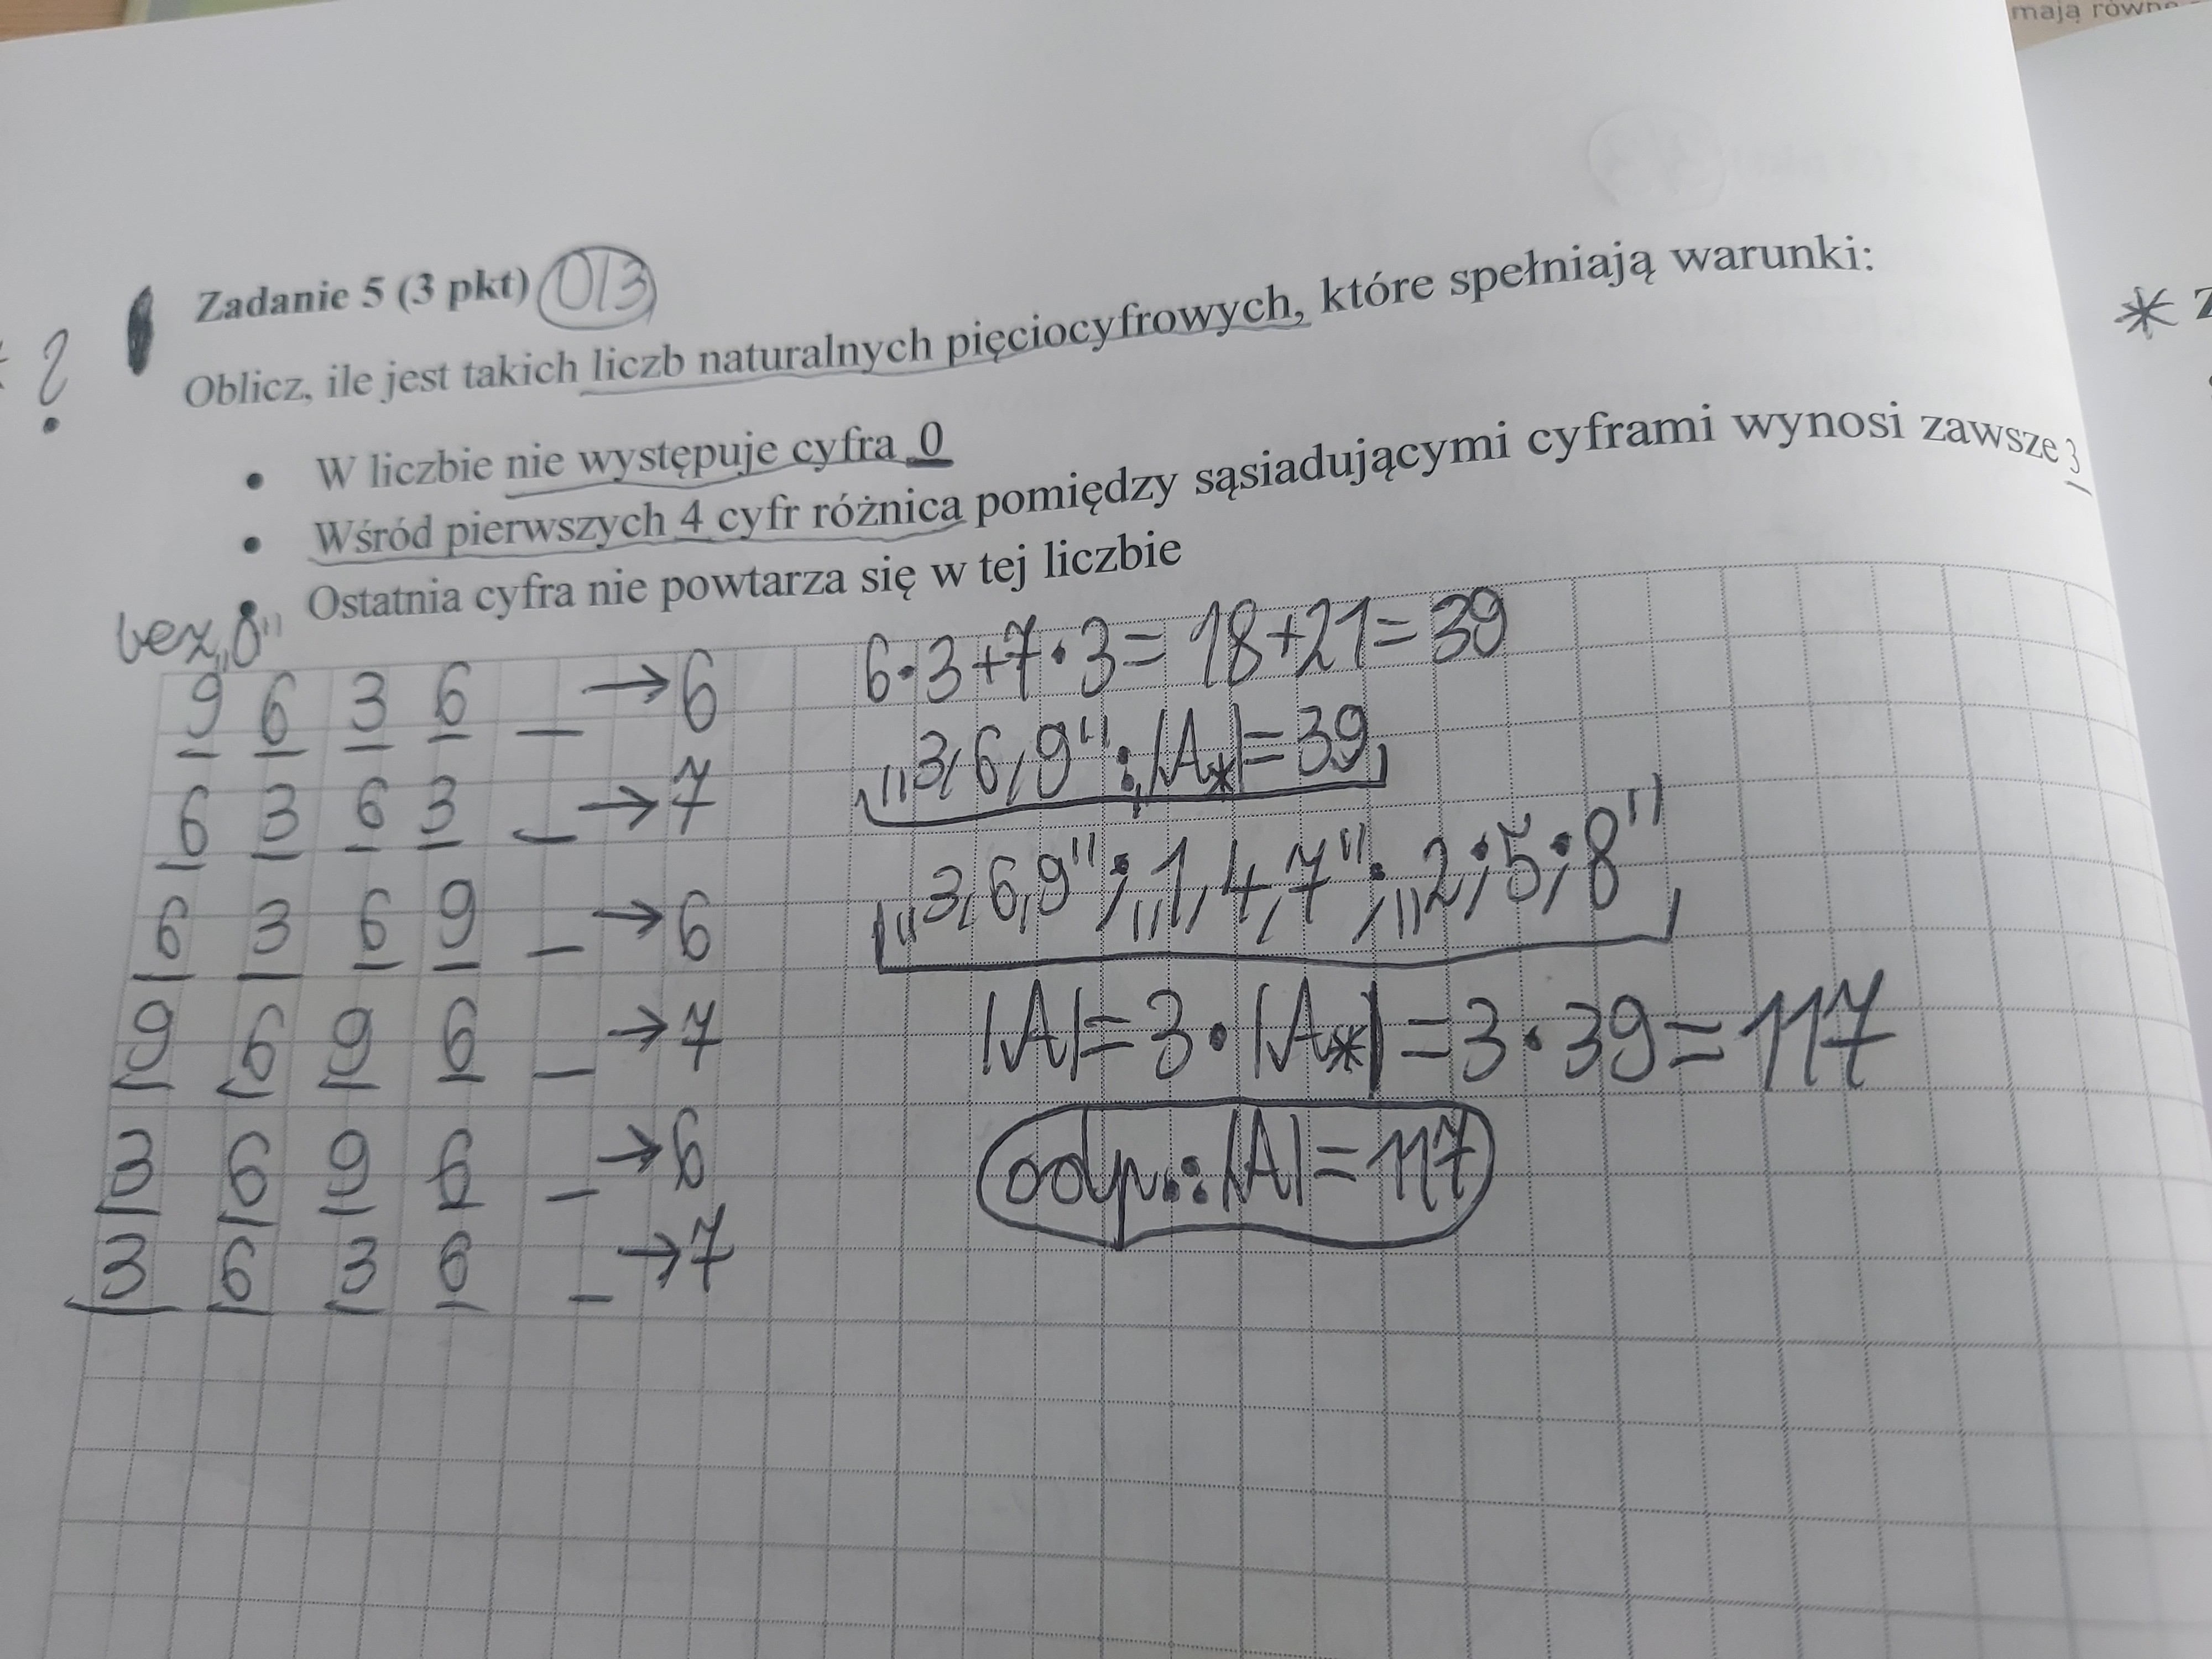 mają równe
Zadanie 5 (3 pkt) 0/3
Oblicz, ile jest takich liczb naturalnych pięciocyfrowych, które spełniają warunki:
?
• W liczbie nie występuje cyfra 0
• Wśród pierwszych 4 cyfr różnica pomiędzy sąsiadującymi cyframi wynosi zawsze 3
• Ostatnia cyfra nie powtarza się w tej liczbie
bez „0"
9 6 3 6 _ → 6
6 3 6 3 _ → 7
6 3 6 9 _ → 6
9 6 9 6 _ → 7
3 6 9 6 _ → 6
3 6 3 6 _ → 7
6·3+7·3=18+21=39
„3,6,9": |A*|=39
„3,6,9"; „1,4,7"; „2;5;8"
|A|=3·|A*|=3·39=117
odp.: |A|=117
* Z